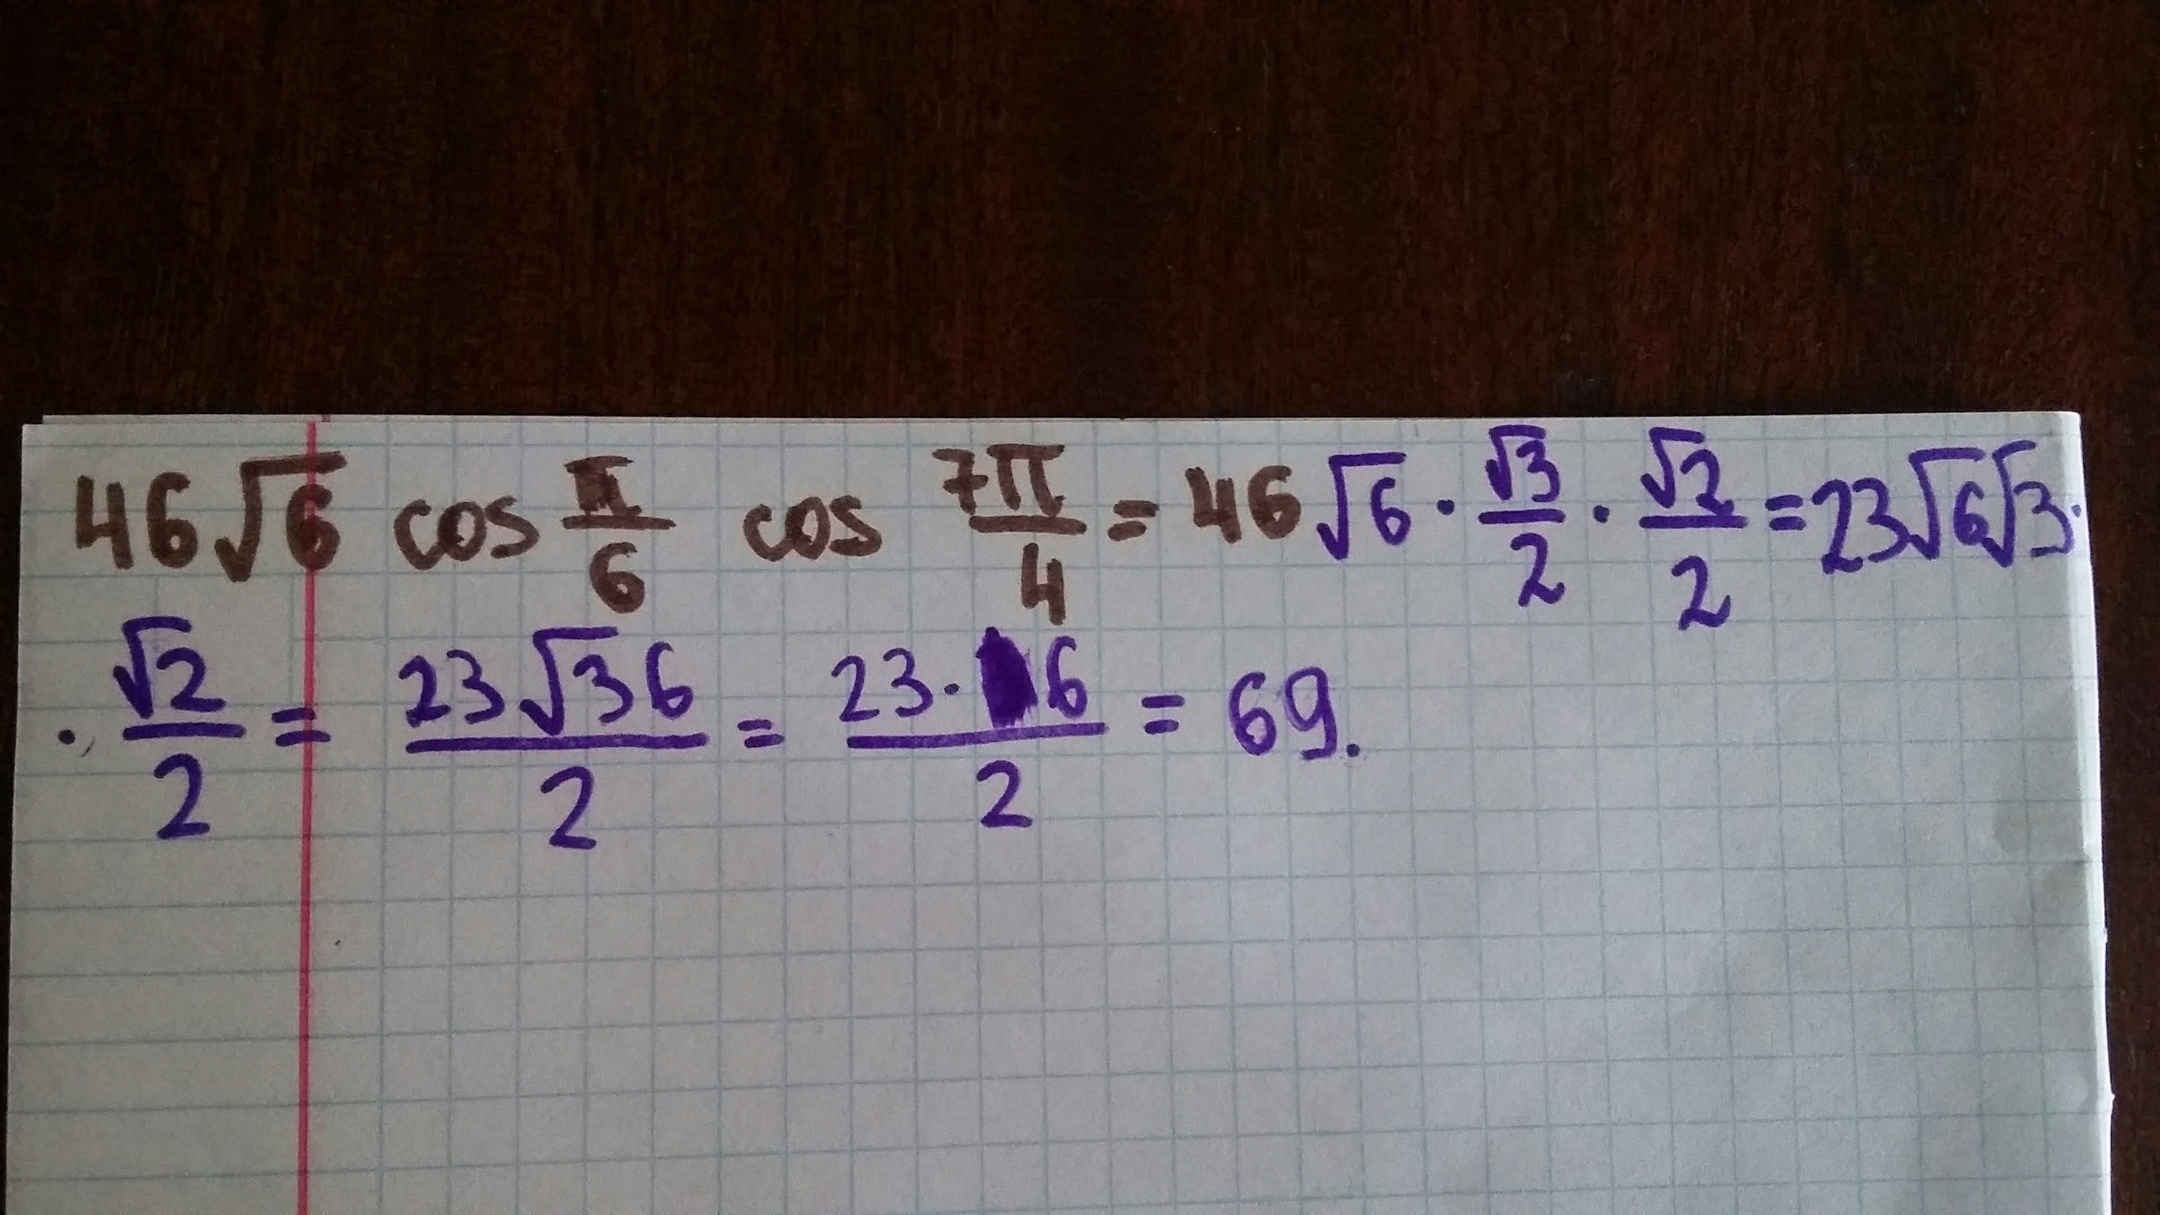 46√6 cos π/6 cos 7π/4 = 46√6 · √3/2 · √2/2 = 23√6√3·
· √2/2 = 23√36/2 = 23·6/2 = 69.